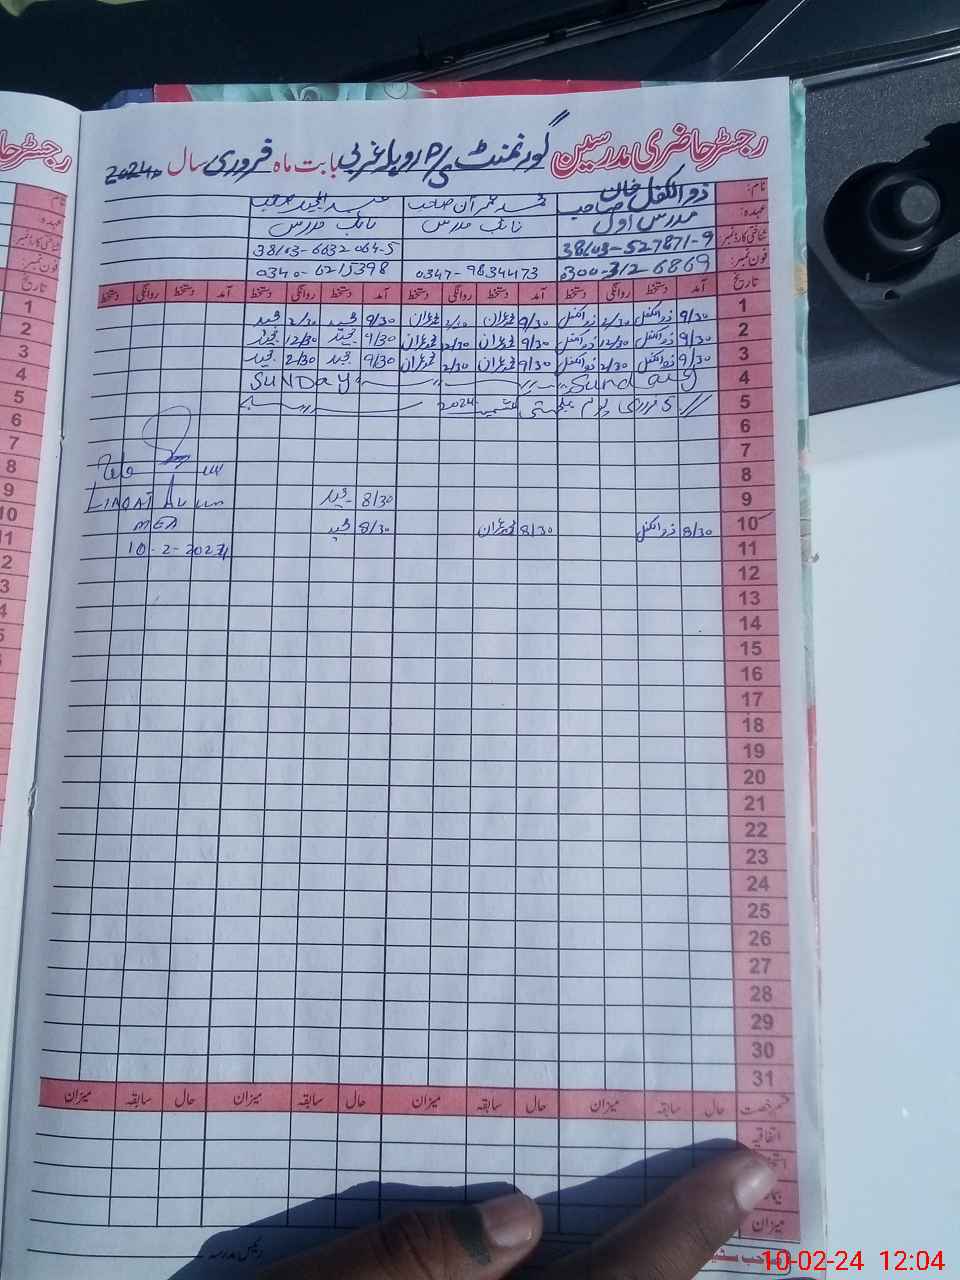 رجسٹر حاضری مدرسین گورنمنٹ P/S روپار غربی بابت ماہ فروری سال 2024ء
نام: ذوالکفل خان صاحب
عہدہ: مدرس اول نائب مدرس نائب مدرس
شناختی کارڈ نمبر: 38103-527871-9 38103-6632064-5
فون نمبر: 0300-3126869 0347-9834473 0340-6215398
تاریخ آمد دستخط روانگی دستخط آمد دستخط روانگی دستخط آمد دستخط روانگی دستخط آمد دستخط روانگی دستخط
1 9/30 ذوالکفل 2/30 ذوالکفل 9/30 عمران 2/30 عمران 9/30 مجید 2/30 مجید
2 9/30 ذوالکفل 12/30 ذوالکفل 9/30 عمران 12/30 عمران 9/30 مجید 12/30 مجید
3 9/30 ذوالکفل 2/30 ذوالکفل 9/30 عمران 2/30 عمران 9/30 مجید 2/30 مجید
4 Sunday SUNDAY
5 5 فروری یوم یکجہتی کشمیر 2024
6
7
8
9 8/30 مجید LIAQAT
10 8/30 ذوالکفل 8/30 عمران 8/30 مجید MEA
11 10-2-2024
12
13
14
15
16
17
18
19
20
21
22
23
24
25
26
27
28
29
30
31
قسم رخصت حال سابقہ میزان حال سابقہ میزان حال سابقہ میزان حال سابقہ میزان
اتفاقیہ
میزان
رئیس مدرسہ
10-02-24 12:04